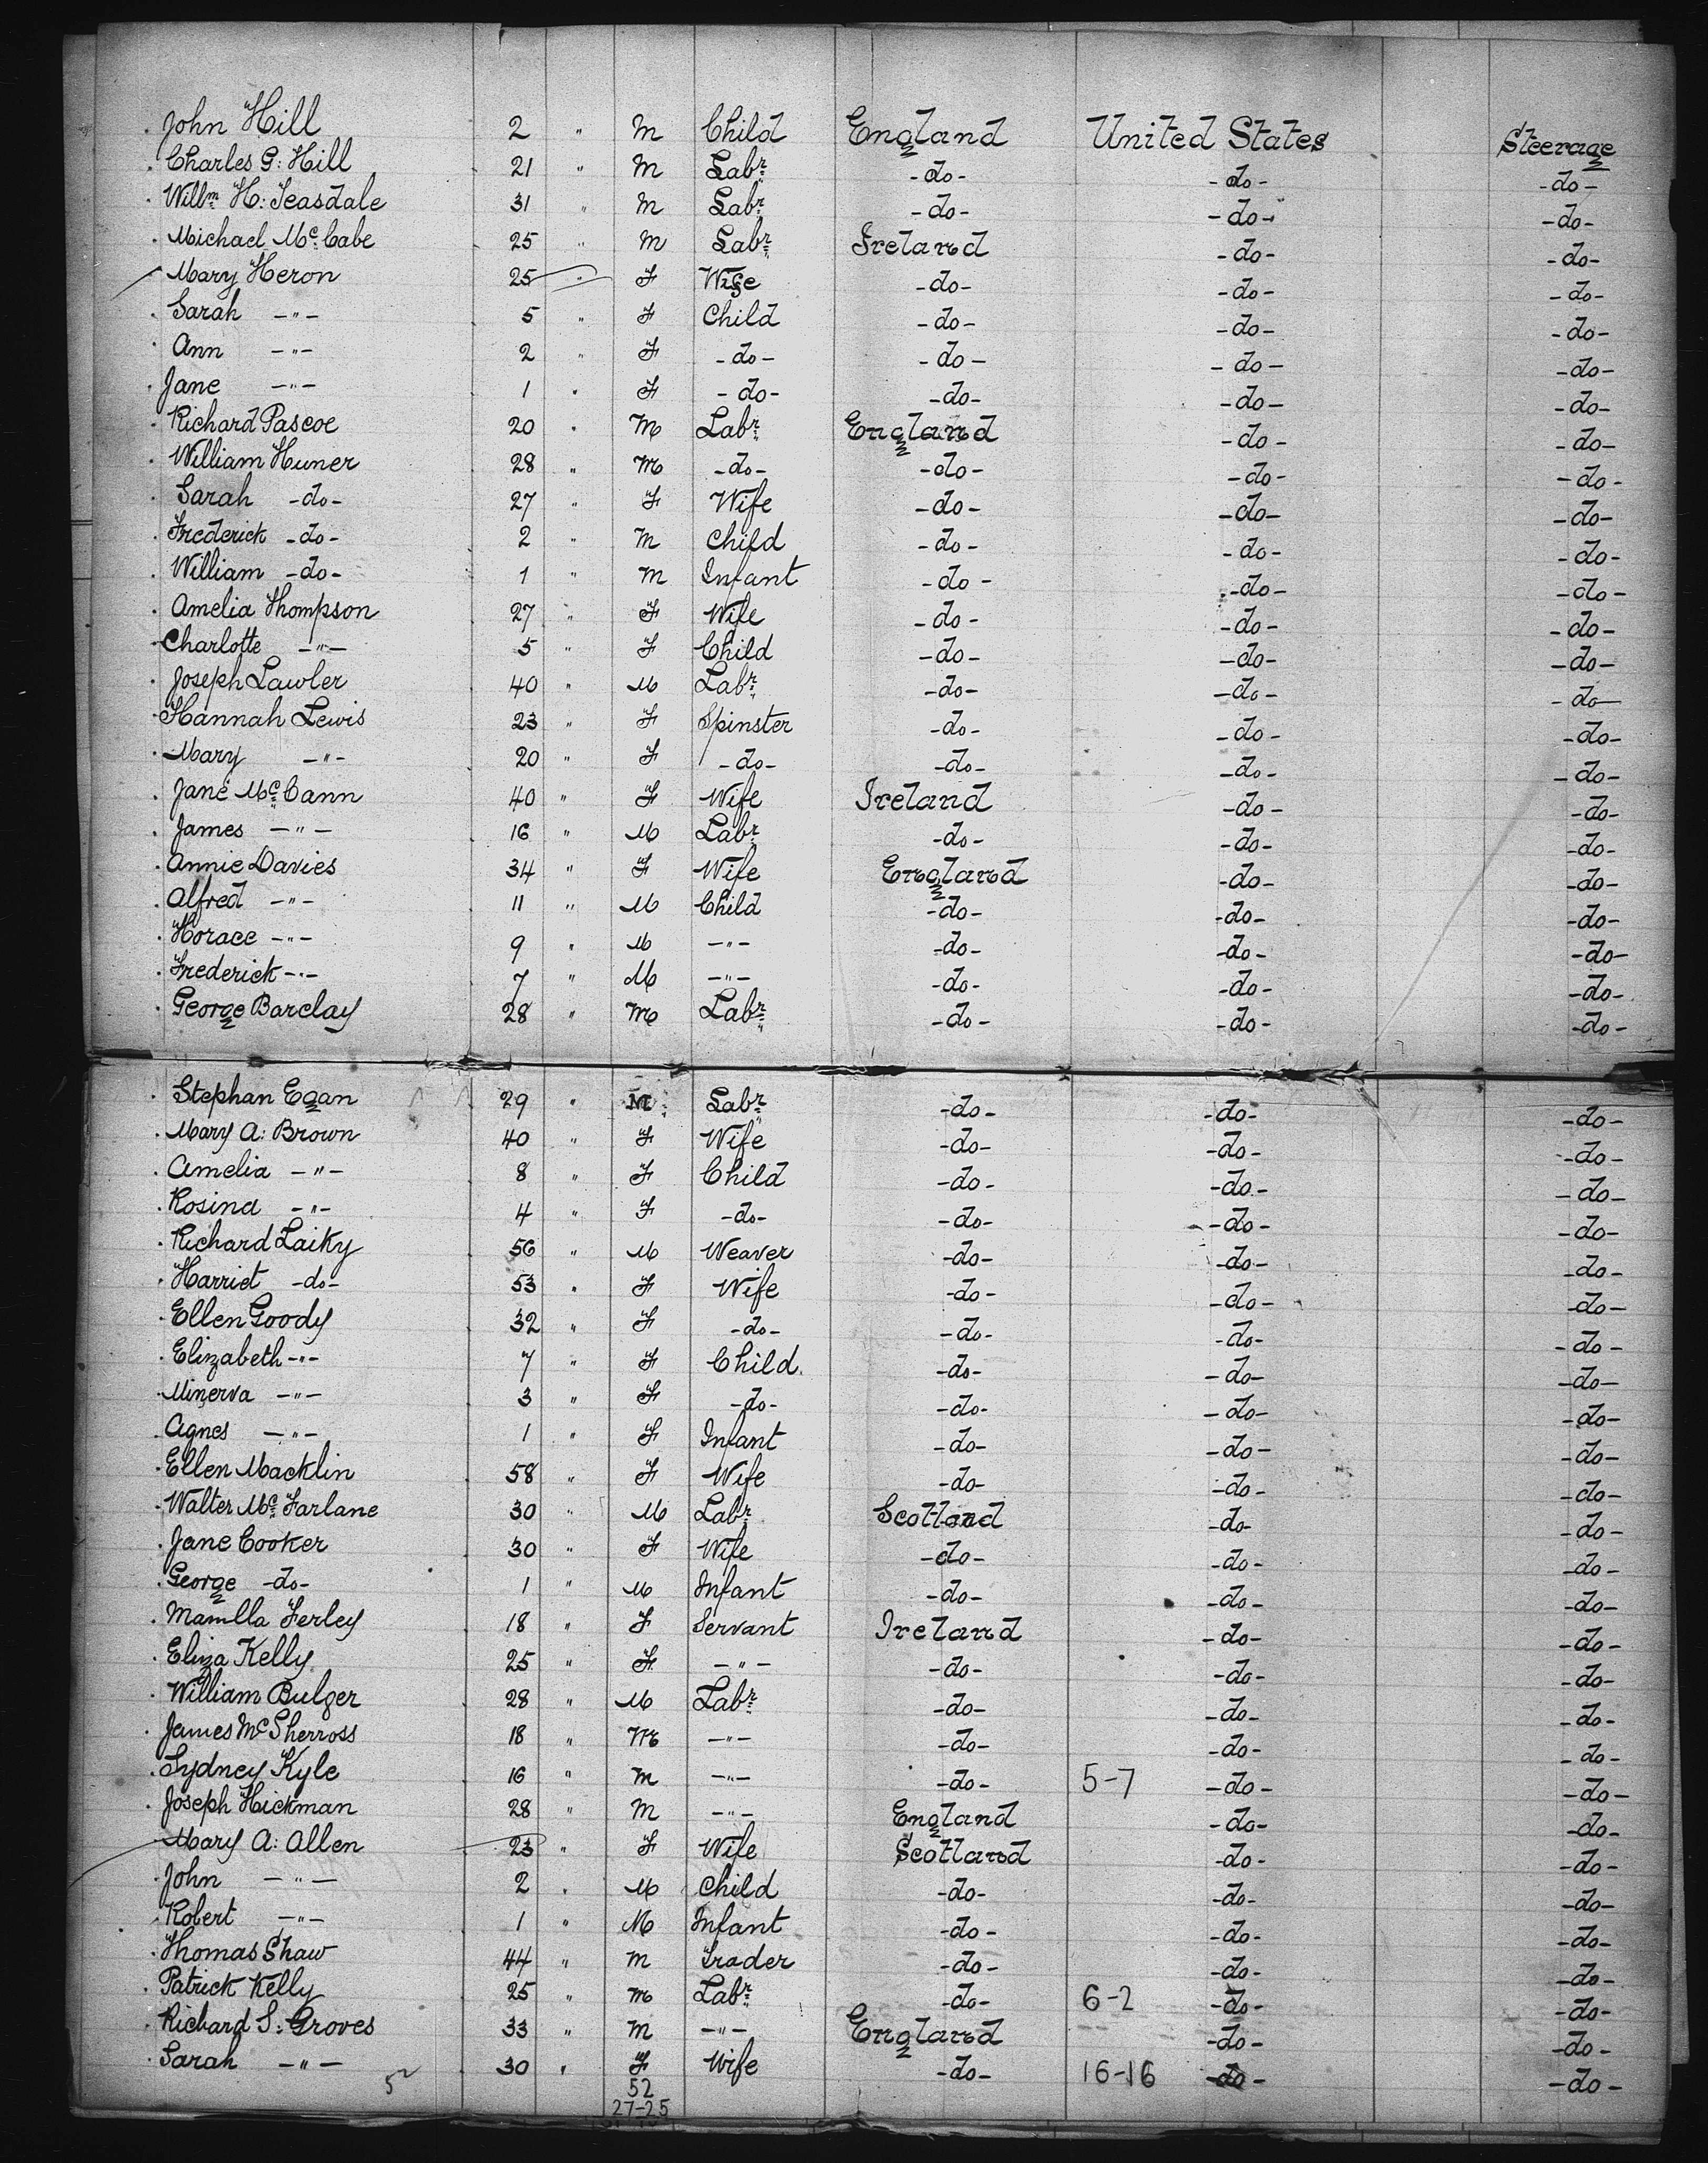 John Hill 2 " M Child England United States Steerage
Charles G: Hill 21 " M Labr -do- -do- -do-
Willm H: Teasdale 31 " M Labr -do- -do- -do-
Michael Mc Cabe 25 " M Labr Ireland -do- -do-
Mary Heron 25 " F Wife -do- -do- -do-
Sarah -"- 5 " F Child -do- -do- -do-
Ann -"- 2 " F -do- -do- -do- -do-
Jane -"- 1 " F -do- -do- -do- -do-
Richard Pascoe 20 " M Labr England -do- -do-
William Huner 28 " M -do- -do- -do- -do-
Sarah -do- 27 " F Wife -do- -do- -do-
Frederick -do- 2 " M Child -do- -do- -do-
William -do- 1 " M Infant -do- -do- -do-
Amelia Thompson 27 " F Wife -do- -do- -do-
Charlotte -"- 5 " F Child -do- -do- -do-
Joseph Lawler 40 " M Labr -do- -do- -do-
Hannah Lewis 23 " F Spinster -do- -do- -do-
Mary -"- 20 " F -do- -do- -do- -do-
Jane Mc Cann 40 " F Wife Ireland -do- -do-
James -"- 16 " M Labr -do- -do- -do-
Annie Davies 34 " F Wife England -do- -do-
Alfred -"- 11 " M Child -do- -do- -do-
Horace -"- 9 " M -"- -do- -do- -do-
Frederick -"- 7 " M -"- -do- -do- -do-
George Barclay 28 " M Labr -do- -do- -do-
Stephan Egan 29 " M Labr -do- -do- -do-
Mary A: Brown 40 " F Wife -do- -do- -do-
Amelia -"- 8 " F Child -do- -do- -do-
Rosina -"- 4 " F -do- -do- -do- -do-
Richard Laiky 56 " M Weaver -do- -do- -do-
Harriet -do- 53 " F Wife -do- -do- -do-
Ellen Goody 32 " F -do- -do- -do- -do-
Elizabeth -"- 7 " F Child. -do- -do- -do-
Minerva -"- 3 " F -do- -do- -do- -do-
Agnes -"- 1 " F Infant -do- -do- -do-
Ellen Macklin 58 " F Wife -do- -do- -do-
Walter Mc Farlane 30 " M Labr Scotland -do- -do-
Jane Cooker 30 " F Wife -do- -do- -do-
George -do- 1 " M Infant -do- -do- -do-
Ferley 18 " F Servant Ireland -do- -do-
Eliza Kelly 25 " F -"- -do- -do- -do-
William Bulger 28 " M Labr -do- -do- -do-
James Mc Sherross 18 " M -"- -do- -do- -do-
Sydney Kyle 16 " M -"- -do- 5-7 -do- -do-
Joseph Hickman 28 " M -"- England -do- -do-
Mary A: Allen 23 " F Wife Scotland -do- -do-
John -"- 2 " M Child -do- -do- -do-
Robert -"- 1 " M Infant -do- -do- -do-
Thomas Shaw 44 " M Trader -do- -do- -do-
Patrick Kelly 25 " M Labr -do- 6-2 -do- -do-
Richard S: Groves 33 " M -"- England -do- -do-
Sarah -"- 30 " F Wife -do- 16-16 -do- -do-
52 52
27-25